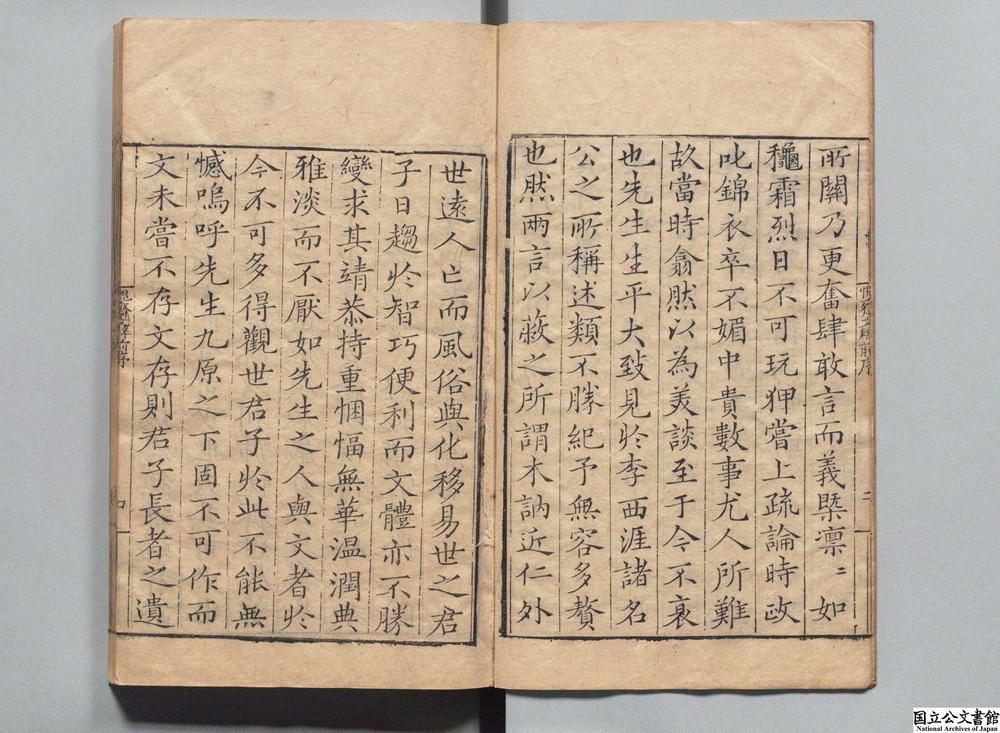 所關乃更奮肆敢言而義槩凛〻如
龝霜烈日不可玩狎嘗上疏論時政
叱錦衣卒不媚中貴數事尤人所難
故當時翕然以為美談至于今不衰
也先生生平大致見於李西涯諸名
公之所稱述類不勝紀予無容多贅
也然两言以蔽之所謂木訥近仁外
二
世遠人亡而風俗與化移易世之君
子日趨於智巧便利而文體亦不勝
變求其靖恭持重悃愊無華温潤典
雅淡而不厭如先生之人與文者於
今不可多得觀世君子於此不能無
憾嗚呼先生九原之下固不可作而
文未嘗不存文存則君子長者之遺
国立公文書館
National Archives of Japan